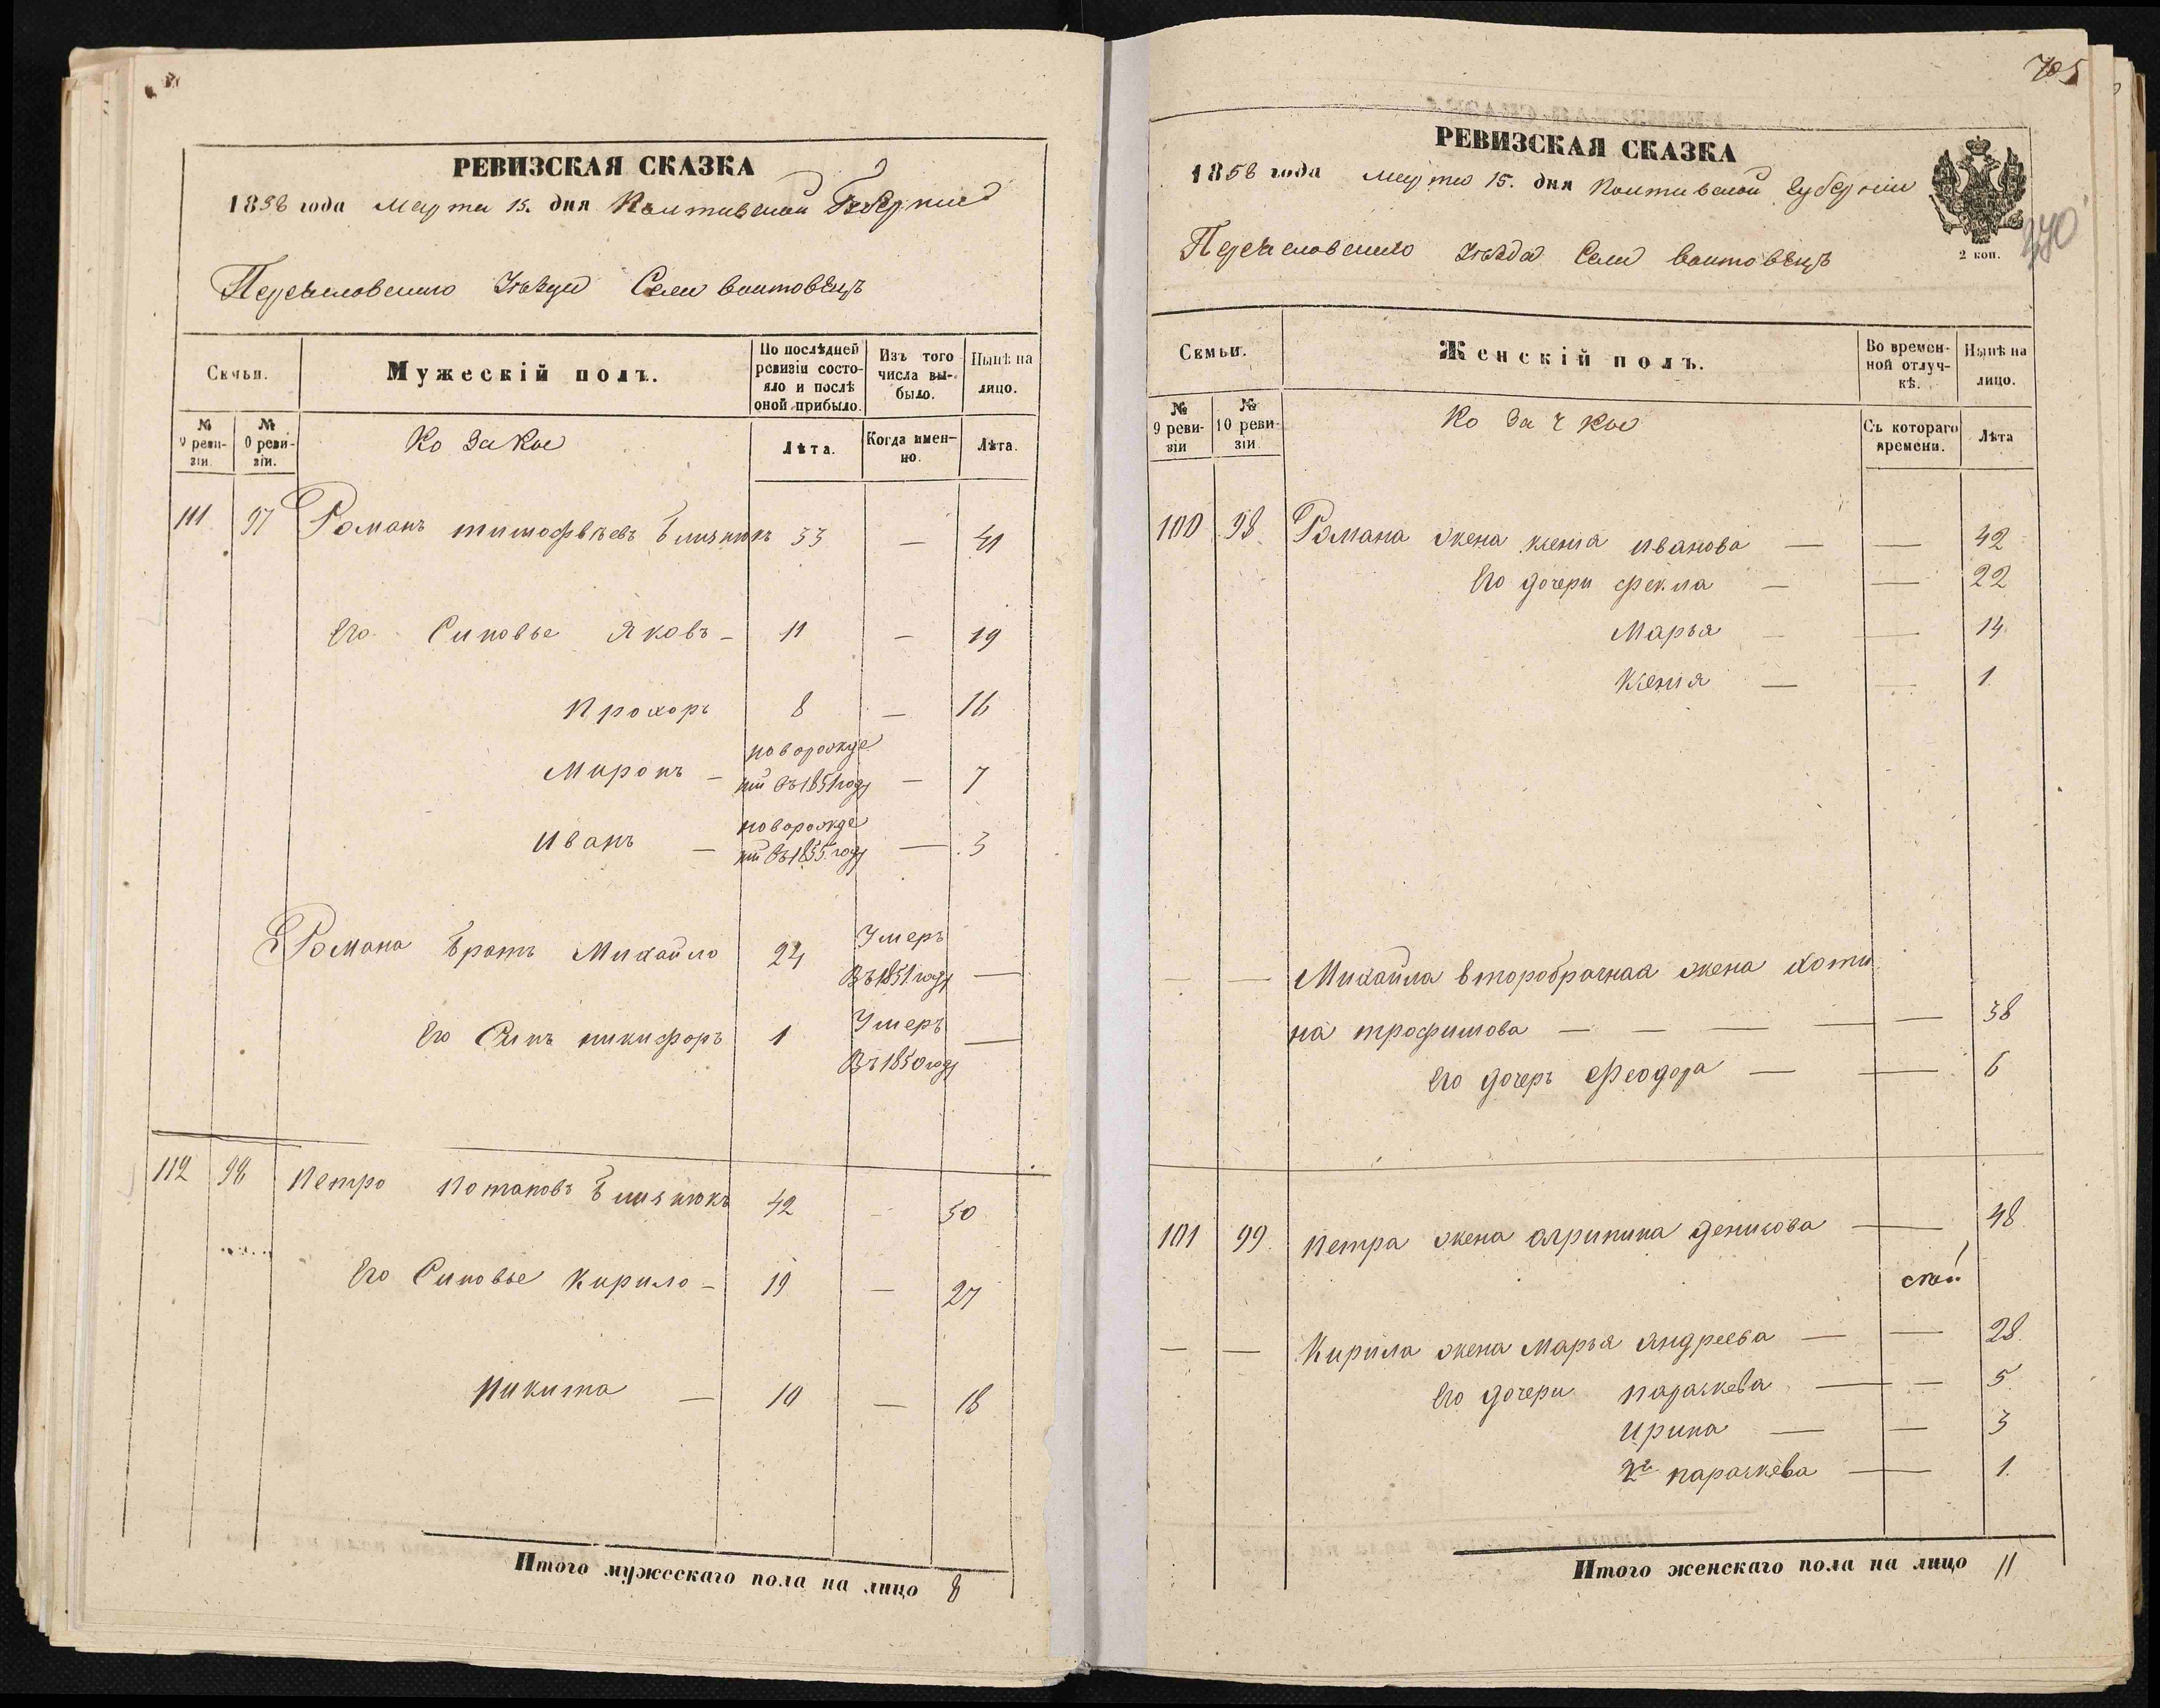 РЕВИЗСКАЯ СКАЗКА
1858 года Марта 15. дня Полтавской Губернии
Переяславского Уезда Села Войтовец
Семьи.
Мужескій полъ.
По послѣдней ревизіи состояло и послѣ оной прибыло.
Изъ того числа выбыло.
Нынѣ на лицо.
№ 9 ревизіи.
№ 0 ревизіи.
Козаки
Лѣта.
Когда именно.
Лѣта.
111 97 Романъ тимофѣевъ Близнюкъ 33 — 41
Его Синовье Яковъ — 11 — 19
Прохоръ 8 — 16
Миронъ — новорожде
ній въ 1851 году — 7
Иванъ — новорожде
ній въ 1855 году — 3
Романа братъ Михайло 24 Умеръ
въ 1851 году —
Его Синъ никифоръ 1 Умеръ
въ 1850 году —
112 98 Петро Потаповъ Близнюкъ 42 — 50
Его Синовье Кирило — 19 — 27
Никита — 10 — 18
Итого мужескаго пола на лицо 8
705
РЕВИЗСКАЯ СКАЗКА
1858 года Марта 15. дня Полтавской Губерніи
340
Переяславского Уезда Села Войтовецъ
2 коп.
Семьи.
Женскій полъ.
Во временной отлучкѣ.
Нынѣ на лицо.
№ 9 ревизіи
№ 10 ревизіи
Козачки
Съ котораго времени.
Лѣта
100 98. Романа жена ксенія иванова — — 42
Его дочери Фекла — — 22
Марья — — 14
Ксенія — — 1
— — Михайла второбрачная жена хоти
на трофимова — — — — — 38
Его дочеръ Феодора — — 6
101 99. Петра жена агрипина денисова — 48
— — Кирила жена Марья Андреева — — 28.
Его дочери параскева — — 5
Ирина — — 3
2я параскева — 1.
Итого женскаго пола на лицо 11